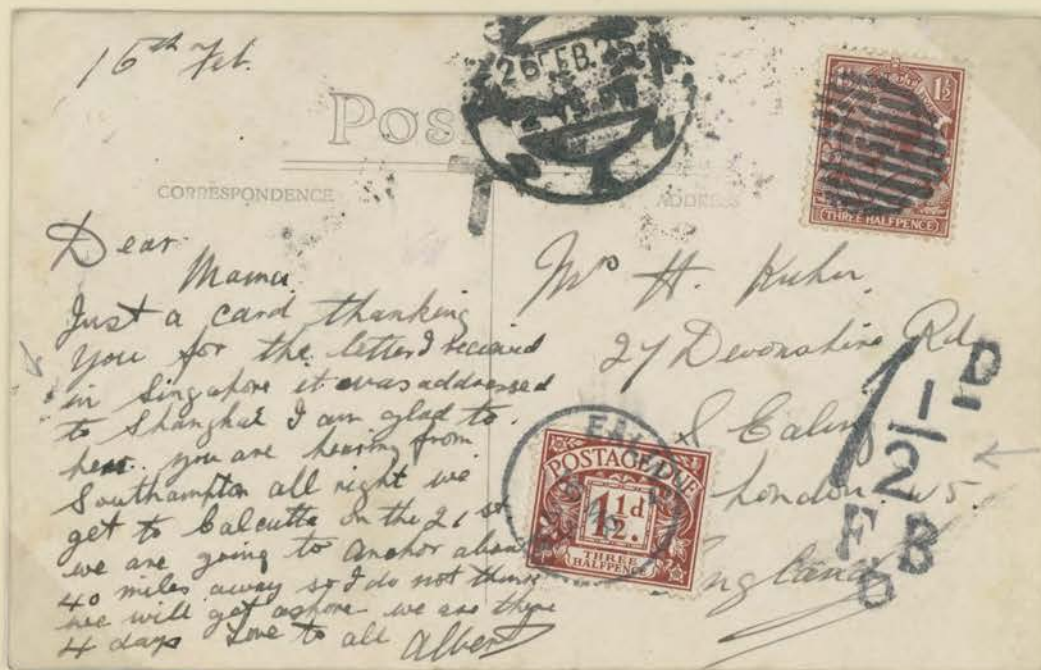 16th Feb.
Post
26 FEB. 2
CORRESPONDENCE
ADDRESS
THREE HALFPENCE
Dear
Mama
Just a card thanking
you for the letter I recieved
in Singapore it was addressed
to Shanghai I am glad to
hear you are hearing from
Southampton all right we
get to Calcutta on the 21 st
we are going to anchor about
40 miles away so I do not think
we will get ashore we are there
4 days Love to all Albert
Mrs H.
27 Devonshire Rd
S Ealing
London W5.
England
T
1 1/2 D
F B
O
EALING
POSTAGE DUE
1½d.
THREE
HALFPENCE